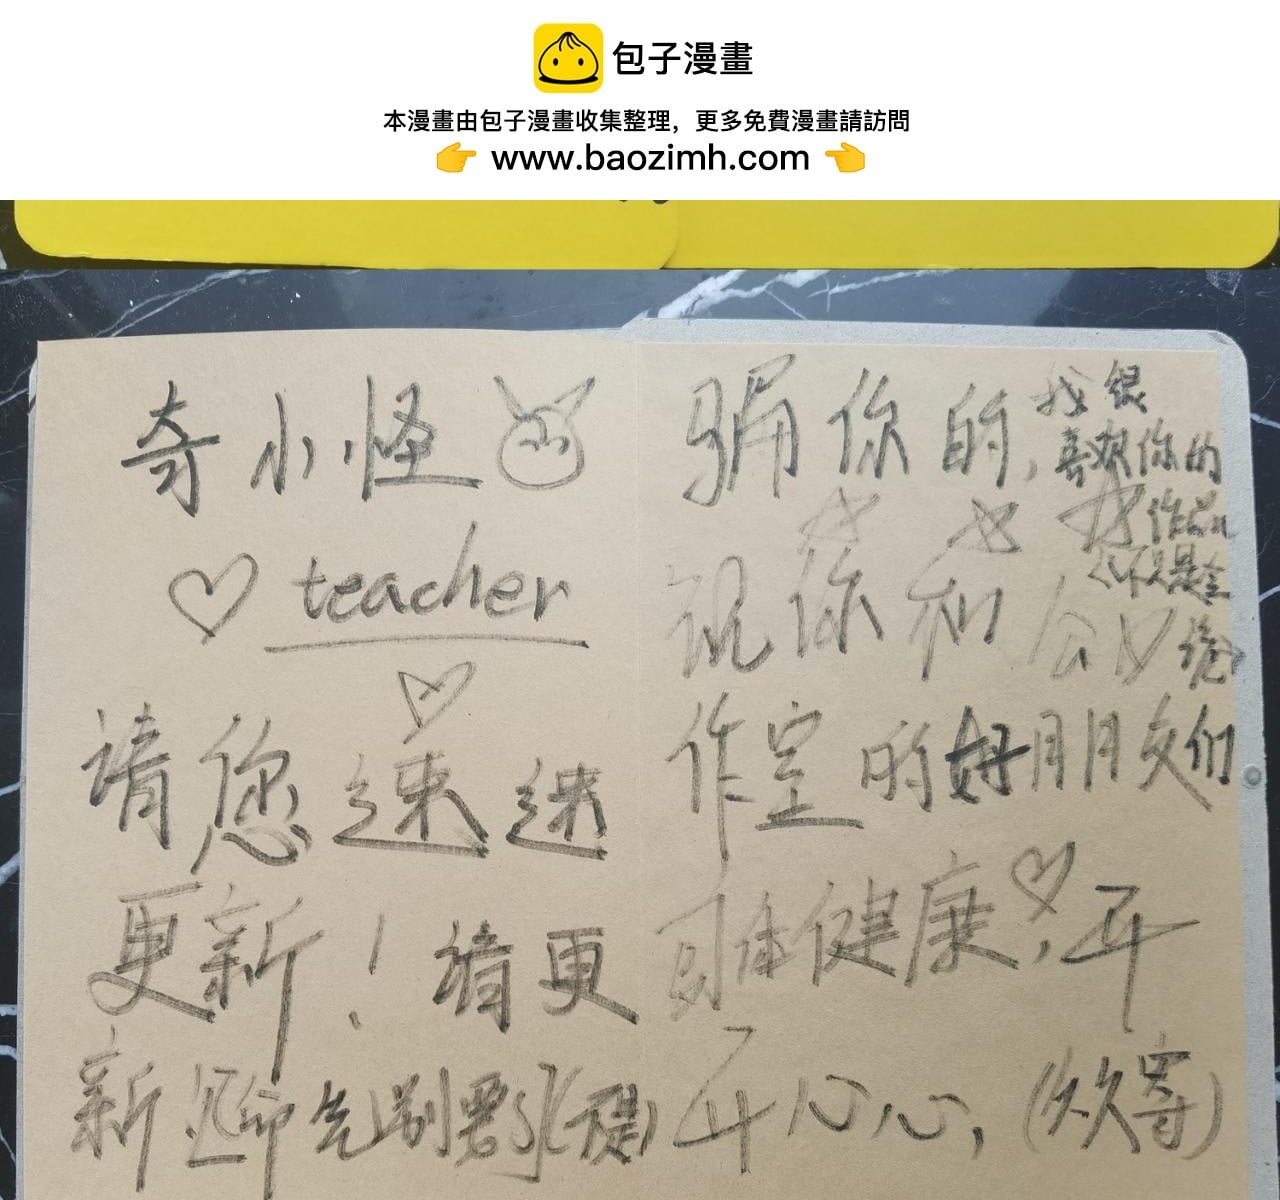 包子漫畫
本漫畫由包子漫畫收集整理，更多免費漫畫請訪問
www.baozimh.com
奇小怪
teacher
请您速速
更新！请更
新
骗你的,
我很
喜欢你的
作品
祝你和
作室的好朋友们
身体健康,开
开心心,